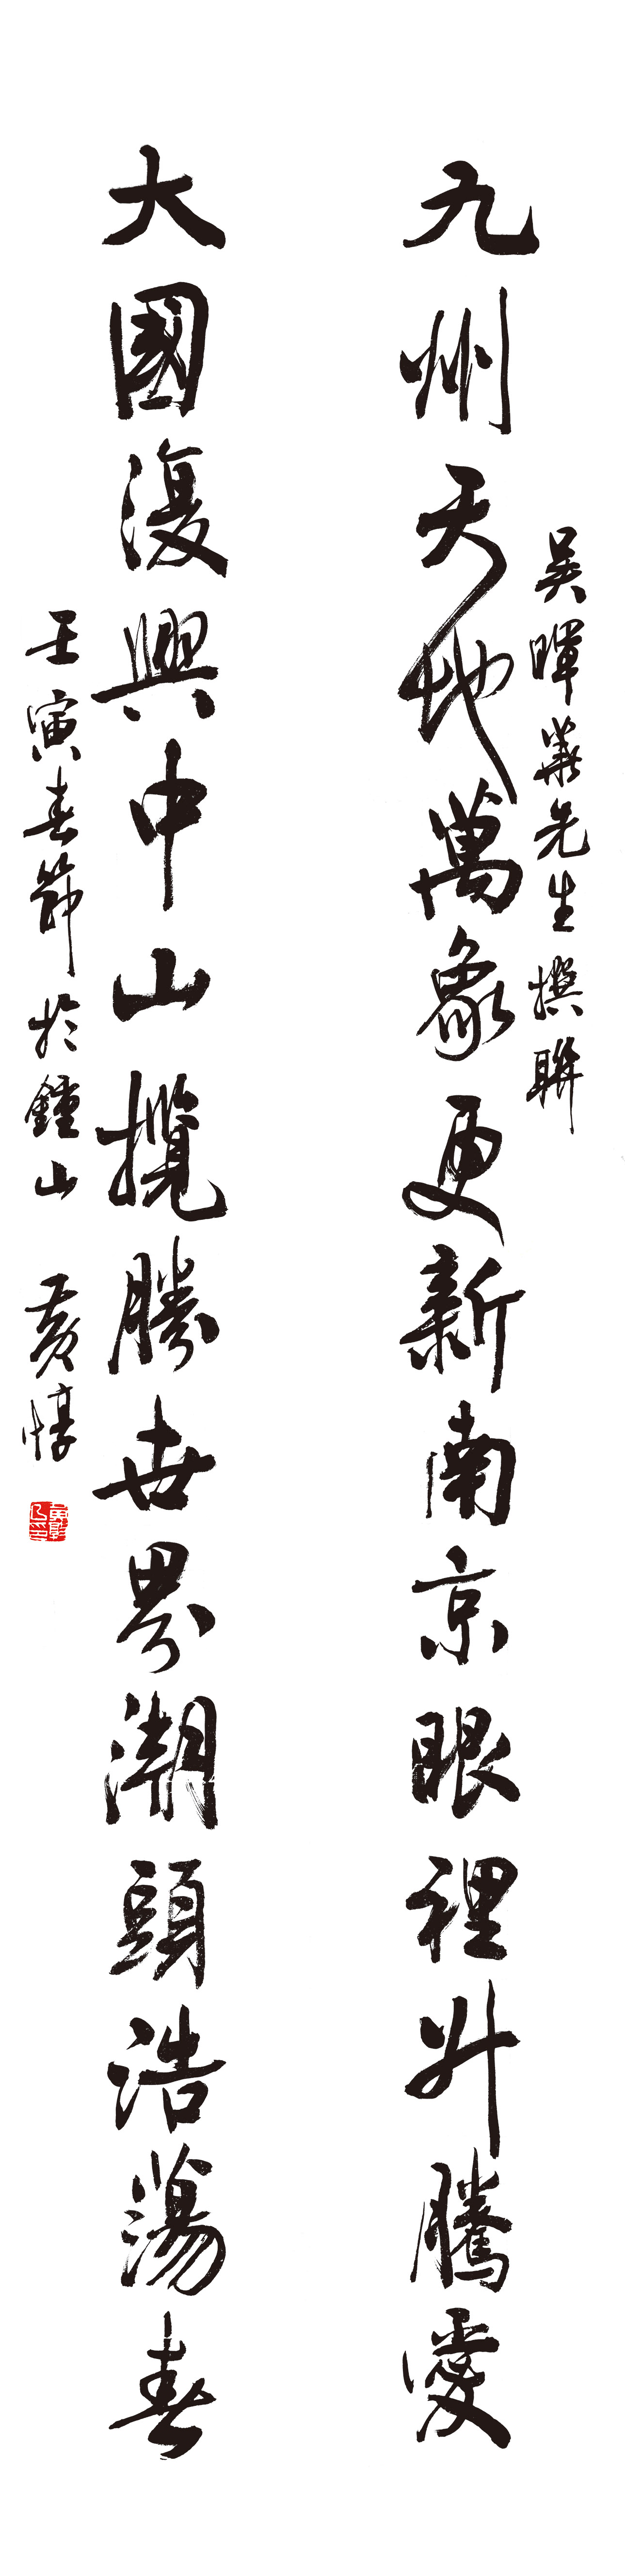 九州天地萬象更新南京眼裡升騰愛
吳暉華先生撰聯
大國復興中山攬勝世界潮頭浩蕩春
壬寅春節於鍾山 黃惇